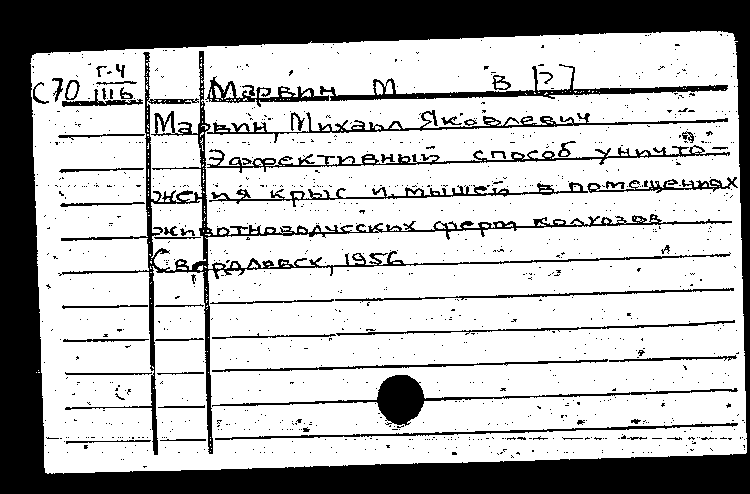 С70 Г-4 Марвин М В [?]
IIIб
Марвин, Михаил Яковлевич
Эффективный способ уничто-
жения крыс и мышей в помещениях
животноводческих ферм колхозов
Свердловск, 1956